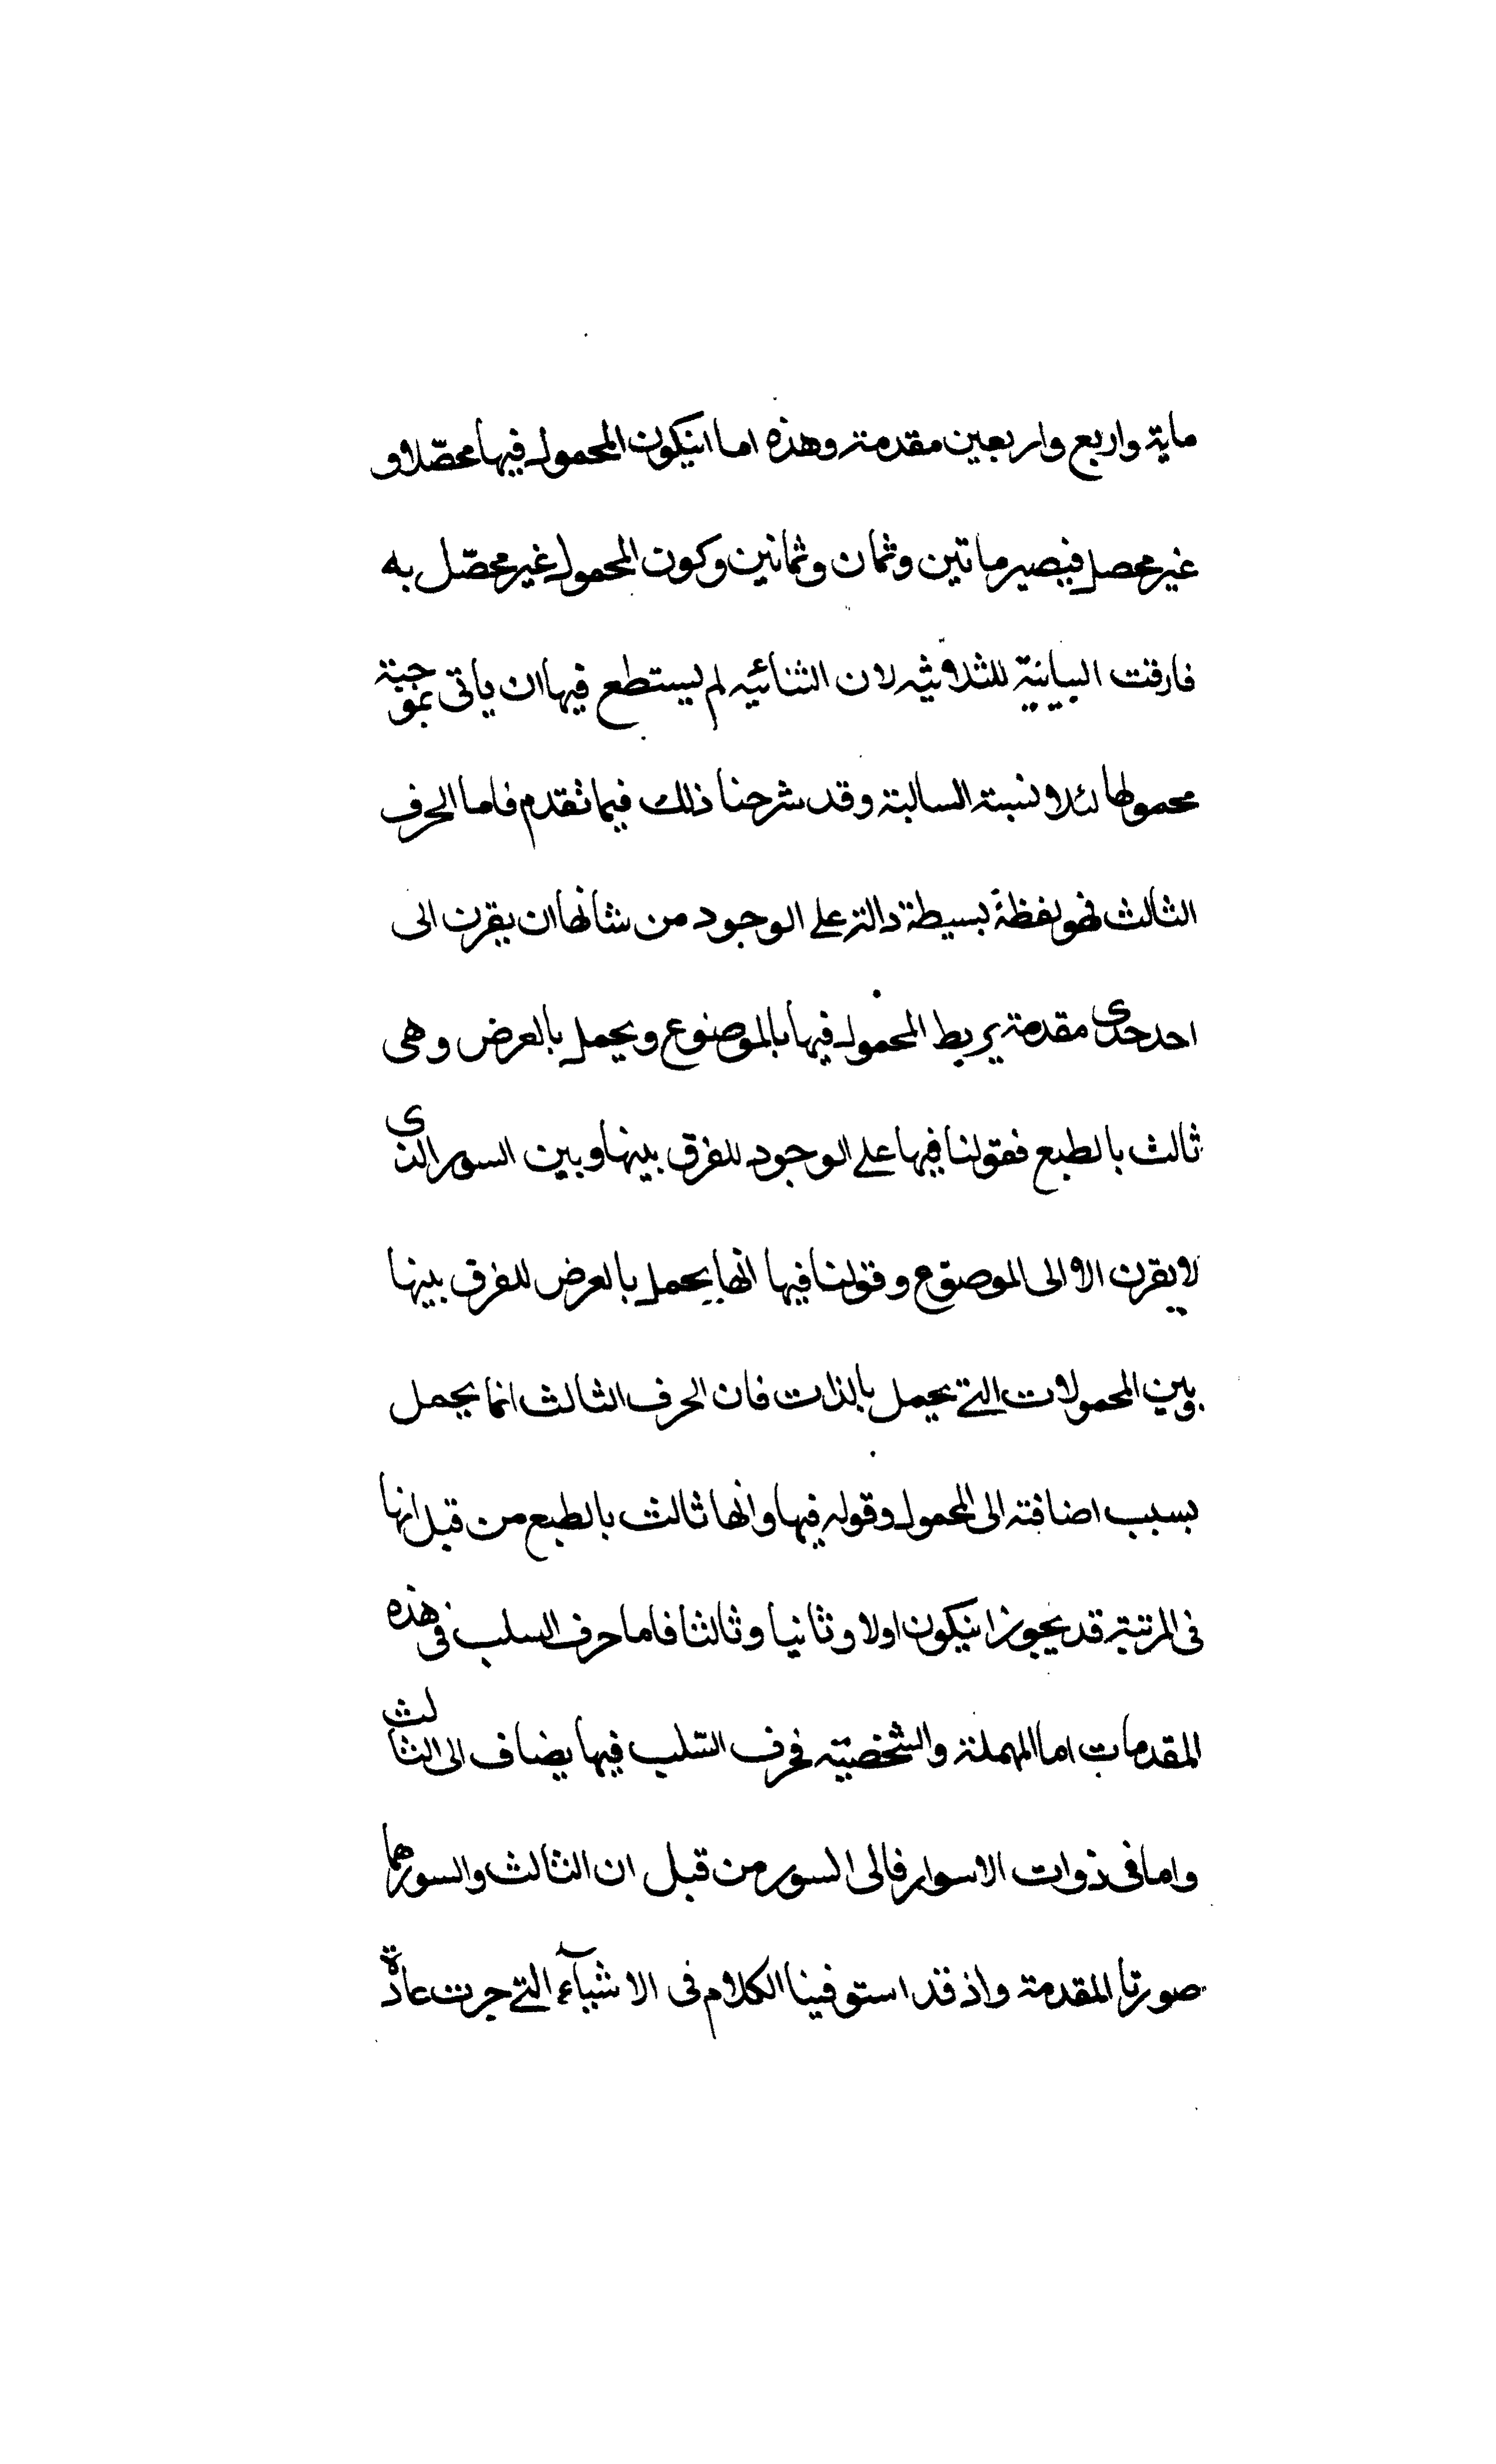 ماية واربع واربعين مقدمة وهذه اما انيكون المحمول فيها محصّلا و
غير محصل فيصير ماتين وثمان وثمانين وكون المحمول غير محصّل به
فارقت الثلاثيه لان الثنائيه لم يستطع فيها ان ياتى بموجبة
محمولها لئلا نسبة السالبة وقد شرحنا ذلك فيما تقدم فاما الحرف
الثالث فهو لفظة بسيطة دالة على الوجود من شانها ان يقرن الى
احدحدى مقدمة يربط المحمول فيها بالموضوع ويحمل بالعرض وهى
ثالث بالطبع فقولنا فيها على الوجود للفرق بينها وبين السور الذى
لا يقرن الا الى الموضوع وقولنا فيها انها يحمل بالعرض للفرق بينها
وبين المحمولات التى يحمل بالذات فان الحرف الثالث انما يحمل
بسبب اضافته الى المحمول وقوله فيها وانها ثالث بالطبع من قبل انها
فى المرتبة قد يجوز انيكون اولا وثانيا وثالثا فاما حرف السلب فى هذه
المقدمات اما المهملة والشخصيّة فحرف السّلب فيها يضاف الى الثالث
واما فى ذوات الاسوار فالى السور من قبل ان الثالث والسور هما
صورتا المقدمة واذ قد استوفينا الكلام فى الاشيآء التى جرت عادة